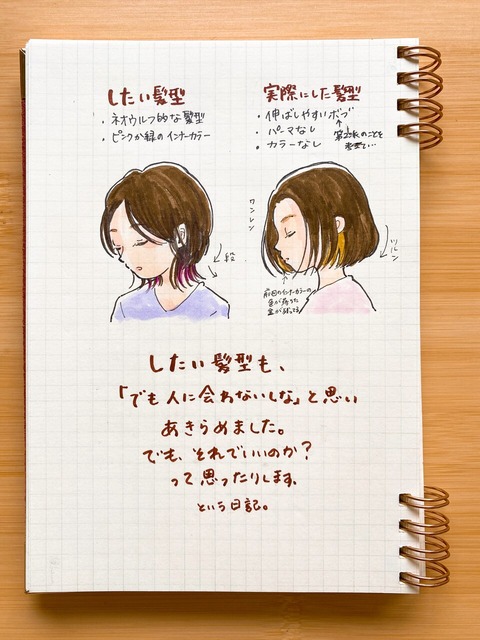 したい髪型
・ネオウルフ的な髪型
・ピンクか緑のインナーカラー
実際にした髪型
・伸ばしやすいボブ
・パーマなし
・カラーなし
第2波のことを
考えて…
段
ワンレン
ツルン
前回のインナーカラーの
色が落ちた
金が残ってる
したい髪型も、
「でも人に会わないしな」と思い
あきらめました。
でも、それでいいのか?
って思ったりします。
という日記。